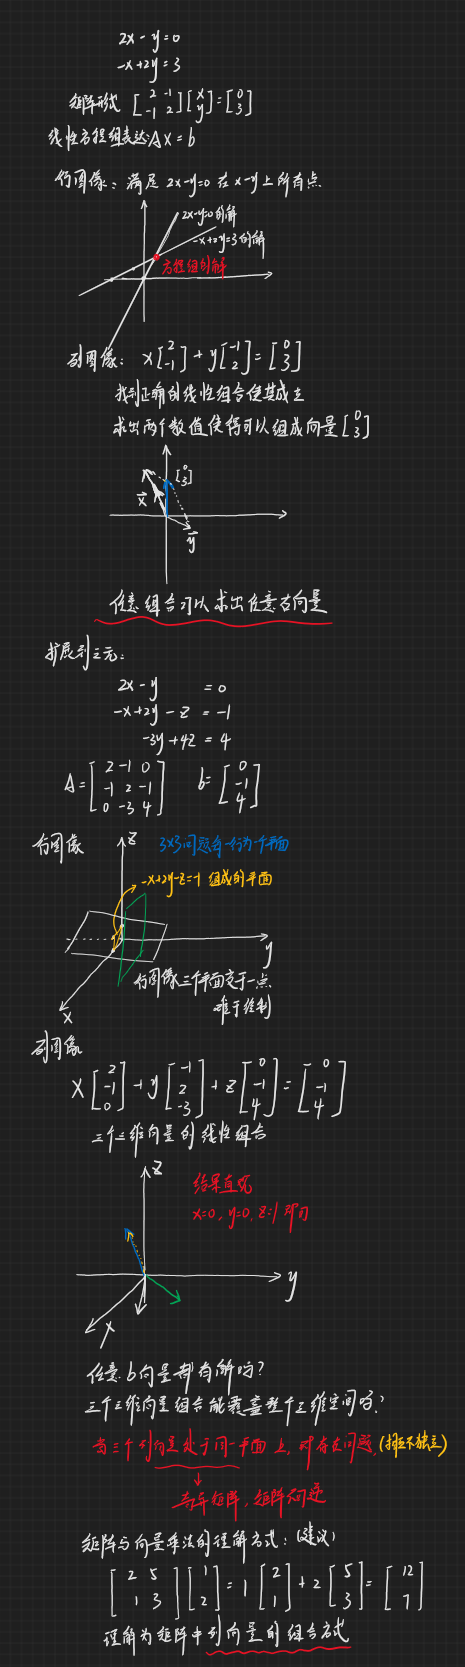 2x - y = 0
-x + 2y = 3
矩阵形式 [2 -1; -1 2][x; y] = [0; 3]
线性方程组表达: Ax = b
行图像: 满足 2x-y=0 在 x-y 上所有点
2x-y=0的解
-x+2y=3的解
方程组的解
列图像: x[2; -1] + y[-1; 2] = [0; 3]
找到正确的线性组合使其成立
求出两个数值使得可以组成向量[0; 3]
[0; 3]
x
y
任意组合可以求出任意右向量
扩展到三元:
2x - y = 0
-x + 2y - z = -1
-3y + 4z = 4
A = [2 -1 0; -1 2 -1; 0 -3 4] b = [0; -1; 4]
行图像
z
3x3问题每一行为一个平面
-x+2y-z=-1 组成的平面
y
行图像三个平面交于一点
难于绘制
x
列图像
x[2; -1; 0] + y[-1; 2; -3] + z[0; -1; 4] = [0; -1; 4]
三个三维向量的线性组合
z
结果直观
x=0, y=0, z=1 即可
y
x
任意b向量都有解吗?
三个三维向量组合能覆盖整个三维空间吗?
当三个列向量处于同一平面上, 时存在问题, 不独立)
奇异矩阵, 矩阵不可逆
矩阵与向量乘法的理解方式: (建议)
[2 5; 1 3][1; 2] = 1[2; 1] + 2[5; 3] = [12; 7]
理解为矩阵中列向量的组合方式